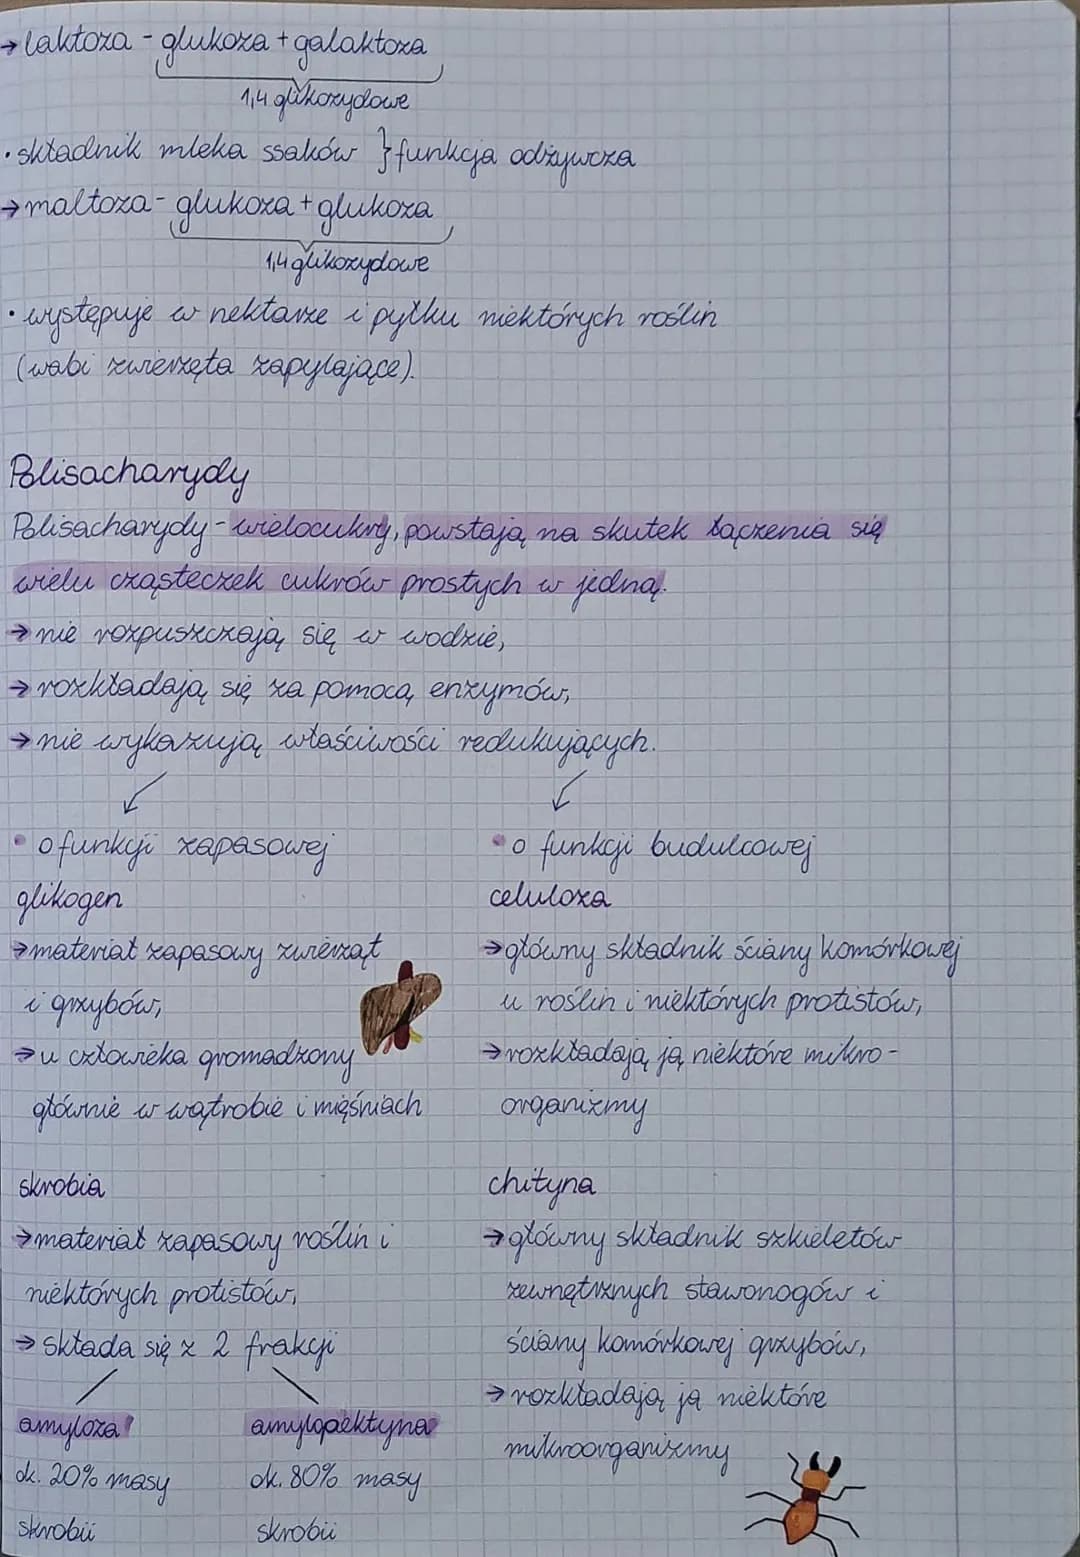 → laktoza - glukoza + galaktoza
1,4 glikozydowe
• składnik mleka ssaków } funkcja odżywcza
→ maltoza - glukoza + glukoza
1,4 glikozydowe
• występuje w nektarze i pyłku niektórych roślin
(wabi zwierzęta zapylające).
Polisacharydy
Polisacharydy - wielocukry, powstają na skutek łączenia się
wielu cząsteczek cukrów prostych w jedną.
→ nie rozpuszczają się w wodzie,
→ rozkładają się za pomocą enzymów,
→ nie wykazują właściwości redukujących.
• o funkcji zapasowej
glikogen
→ materiał zapasowy zwierząt
i grzybów,
→ u człowieka gromadzony
głównie w wątrobie i mięśniach
skrobia
→ materiał zapasowy roślin i
niektórych protistów,
→ składa się z 2 frakcji
amyloza amylopektyna
ok. 20% masy ok. 80% masy
skrobii skrobii
• o funkcji budulcowej
celuloza
→ główny składnik ściany komórkowej
u roślin i niektórych protistów,
→ rozkładają ją niektóre mikro-
organizmy
chityna
→ główny składnik szkieletów
zewnętrznych stawonogów i
ściany komórkowej grzybów,
→ rozkładają ją niektóre
mikroorganizmy